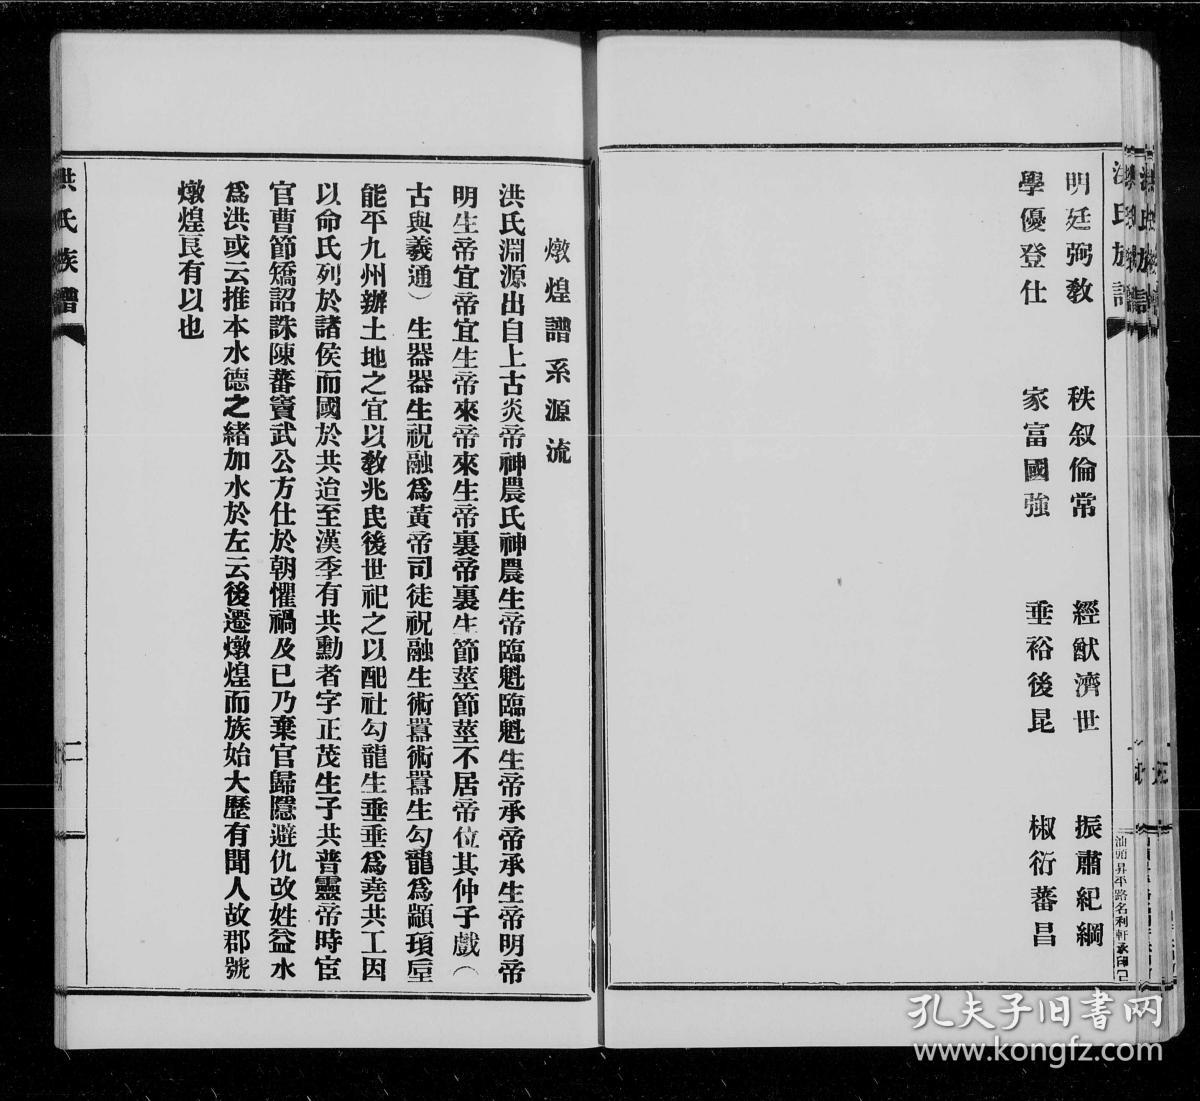 洪氏族譜
明廷弼教　秩叙倫常　經猷濟世　振肅紀綱
學優登仕　家富國強　垂裕後昆　椒衍蕃昌
汕頭昇平路名利軒承印
燉煌譜系源流
洪氏淵源出自上古炎帝神農氏神農生帝臨魁臨魁生帝承帝承生帝明帝
明生帝宜帝宜生帝來帝來生帝裏帝裏生節莖節莖不居帝位其仲子戲（
古與羲通）生器器生祝融爲黃帝司徒祝融生術嚣術嚣生勾龍爲顓頊后
能平九州辦土地之宜以敎兆民後世祀之以配社勾龍生垂垂爲堯共工因
以命氏列於諸侯而國於共迨至漢季有共勳者字正茂生子共普靈帝時宦
官曹節矯詔誅陳蕃竇武公方仕於朝懼禍及已乃棄官歸隱避仇改姓益水
爲洪或云推本水德之緒加水於左云後遷燉煌而族始大歷有聞人故郡號
燉煌艮有以也
洪氏族譜
二
孔夫子旧书网
www.kongfz.com